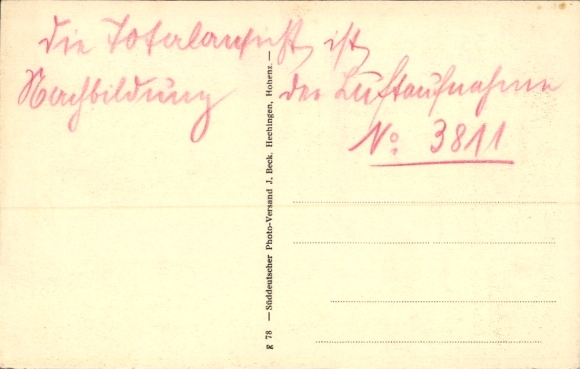 die Totalansicht ist
Nachbildung der Luftaufnahme
No. 3811
g 78 — Süddeutscher Photo-Versand J. Beck. Hechingen, Hohenz. —